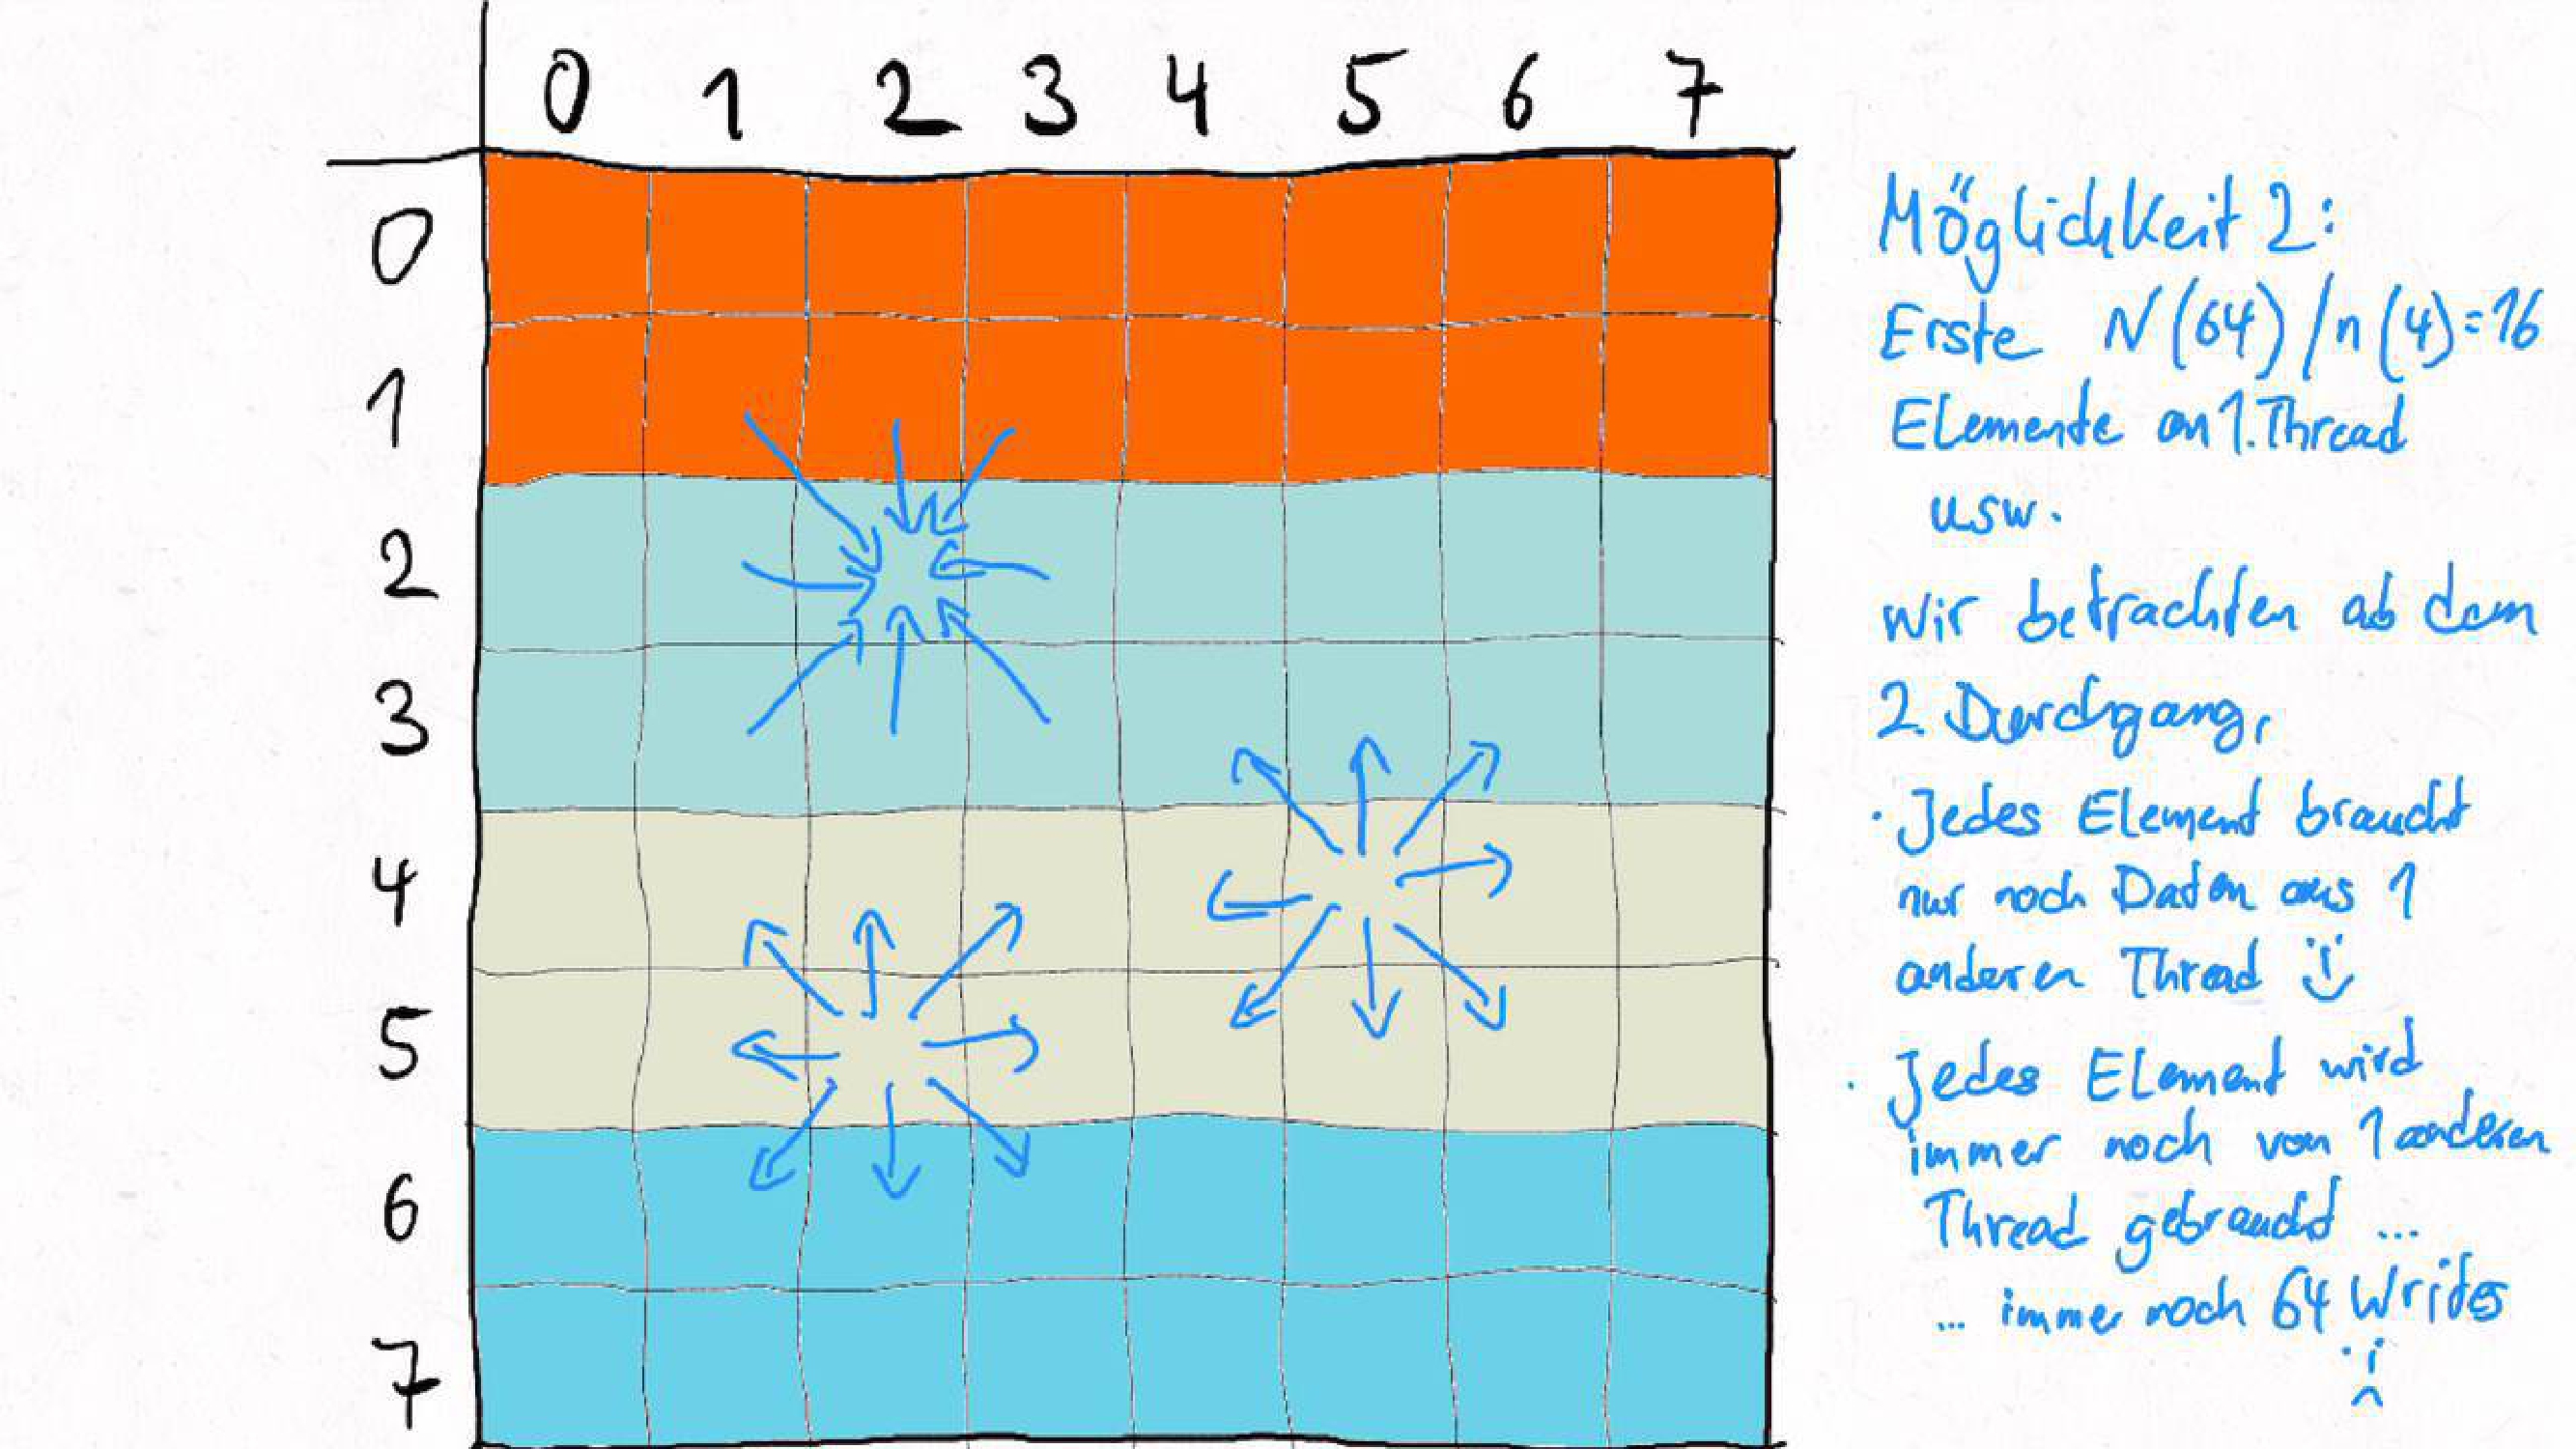 0 1 2 3 4 5 6 7
0
1
2
3
4
5
6
7
Möglichkeit 2:
Erste N(64)/n(4)=16
Elemente an 1. Thread
usw.
Wir betrachten ab dem
2. Durchgang,
· Jedes Element braucht
nur noch Daten aus 1
anderen Thread
· Jedes Element wird
immer noch von 1 anderen
Thread gebraucht ...
... immer noch 64 Writes